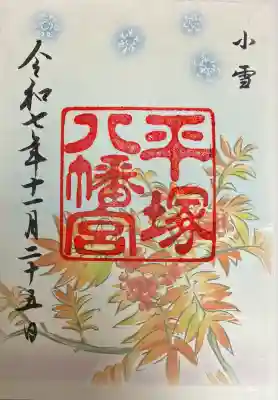 小雪
平塚
八幡宮
令和七年十一月二十五日